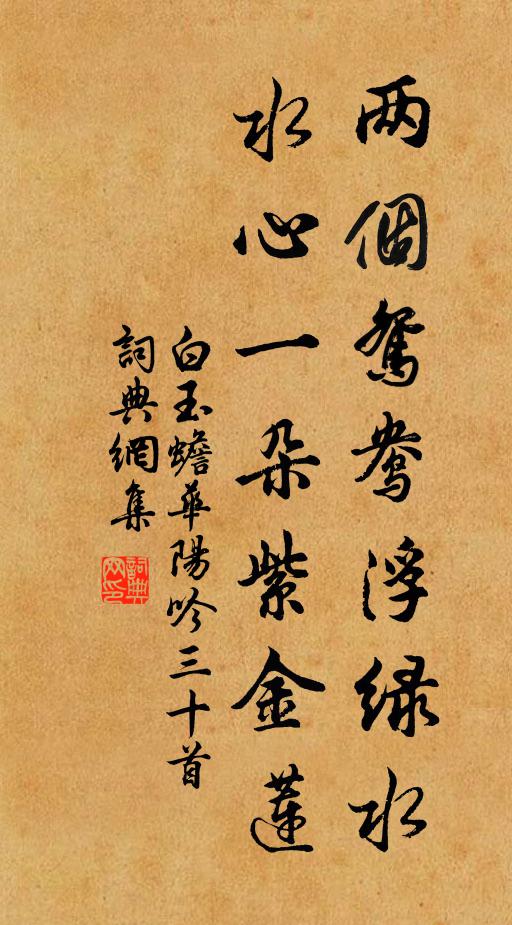 两個鴛鴦浮緑水
水心一朵紫金蓮
白玉蟾華陽吟三十首
詞典網集
詞典网印